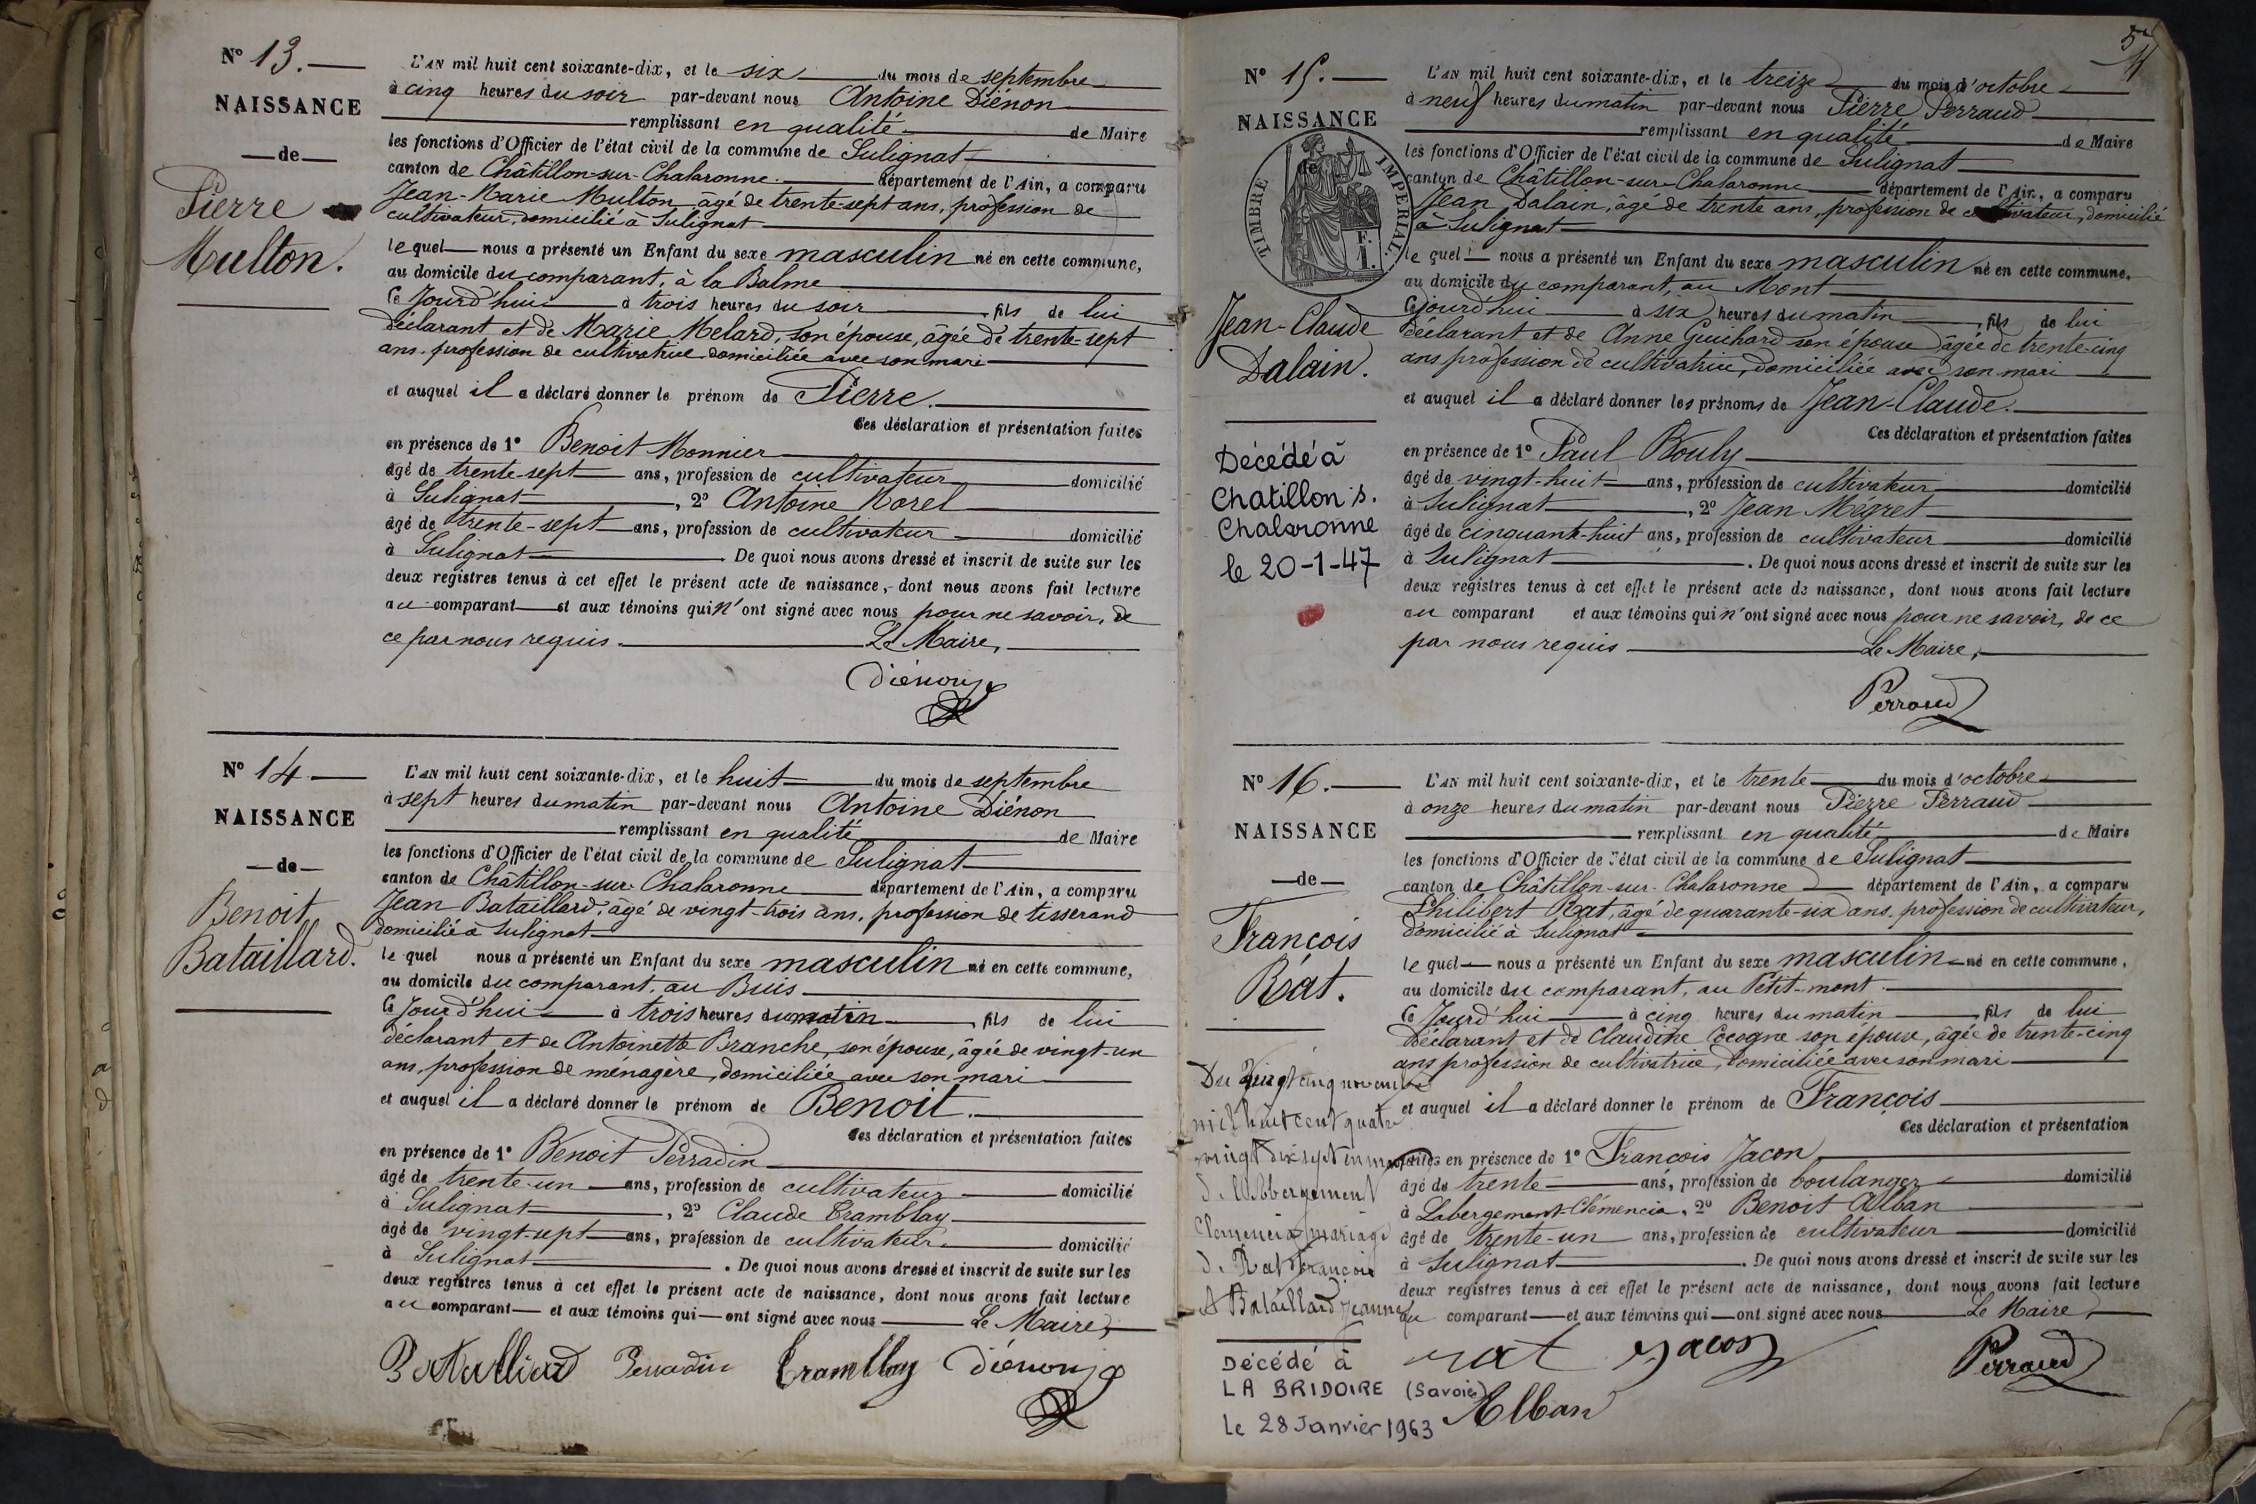 N° 13.
NAISSANCE
de
Pierre
Multon.
L'AN mil huit cent soixante-dix, et le six du mois de septembre
à cinq heures du soir par-devant nous Antoine Diénon
remplissant en qualité de Maire
les fonctions d'Officier de l'état civil de la commune de Sulignat
canton de Châtillon-sur-Chalaronne département de l'Ain, a comparu
Jean-Marie Multon, âgé de trente-sept ans, profession de
cultivateur, domicilié à Sulignat
le quel nous a présenté un Enfant du sexe masculin né en cette commune,
au domicile du comparant, à la Balme
Ce Jourd'hui à trois heures du soir, fils de lui
déclarant et de Marie Melard, son épouse, âgée de trente-sept
ans, profession de cultivatrice domiciliée avec son mari
et auquel il a déclaré donner le prénom de Pierre.
Ces déclaration et présentation faites
en présence de 1° Benoit Monnier
âgé de trente-sept ans, profession de cultivateur domicilié
à Sulignat, 2° Antoine Morel
âgé de trente-sept ans, profession de cultivateur domicilié
à Sulignat. De quoi nous avons dressé et inscrit de suite sur les
deux registres tenus à cet effet le présent acte de naissance, dont nous avons fait lecture
au comparant et aux témoins qui n'ont signé avec nous pour ne savoir, de
ce par nous requis. Le Maire,
Diénon
N° 14
NAISSANCE
de
Benoit
Bataillard.
L'AN mil huit cent soixante-dix, et le huit du mois de septembre
à sept heures du matin par-devant nous Antoine Diénon
remplissant en qualité de Maire
les fonctions d'Officier de l'état civil de la commune de Sulignat
canton de Châtillon-sur-Chalaronne département de l'Ain, a comparu
Jean Bataillard, âgé de vingt-trois ans, profession de tisserand
domicilié à Sulignat
le quel nous a présenté un Enfant du sexe masculin né en cette commune,
au domicile du comparant, au Buis
Ce Jourd'hui à trois heures du matin, fils de lui
déclarant et de Antoinette Branche, son épouse, âgée de vingt-un
ans, profession de ménagère, domiciliée avec son mari
et auquel il a déclaré donner le prénom de Benoit.
Ces déclaration et présentation faites
en présence de 1° Benoit Perradin
âgé de trente-un ans, profession de cultivateur domicilié
à Sulignat, 2° Claude Tramblay
âgé de vingt-sept ans, profession de cultivateur domicilié
à Sulignat. De quoi nous avons dressé et inscrit de suite sur les
deux registres tenus à cet effet le présent acte de naissance, dont nous avons fait lecture
au comparant et aux témoins qui ont signé avec nous Le Maire,
Bataillard Perradin Tramblay Diénon
N° 15.
NAISSANCE
de
TIMBRE IMPERIAL.
F.
1.
Jean-Claude
Dalain.
Décédé à
Chatillon s.
Chalaronne
le 20-1-47
L'AN mil huit cent soixante-dix, et le treize du mois d'octobre
à neuf heures du matin par-devant nous Pierre Perraud
remplissant en qualité de Maire
les fonctions d'Officier de l'état civil de la commune de Sulignat
canton de Châtillon-sur-Chalaronne département de l'Ain, a comparu
Jean Dalain, âgé de trente ans, profession de cultivateur, domicilié
à Sulignat
le quel nous a présenté un Enfant du sexe masculin né en cette commune,
au domicile du comparant, au Mont
Ce jourd'hui à six heures du matin, fils de lui
déclarant et de Anne Guichard son épouse âgée de trente-cinq
ans profession de cultivatrice, domiciliée avec son mari
et auquel il a déclaré donner les prénoms de Jean-Claude.
Ces déclaration et présentation faites
en présence de 1° Paul Bouly
âgé de vingt-huit ans, profession de cultivateur domicilié
à Sulignat, 2° Jean Mégret
âgé de cinquante-huit ans, profession de cultivateur domicilié
à Sulignat. De quoi nous avons dressé et inscrit de suite sur les
deux registres tenus à cet effet le présent acte de naissance, dont nous avons fait lecture
au comparant et aux témoins qui n'ont signé avec nous pour ne savoir, de ce
par nous requis Le Maire,
Perraud
N° 16.
NAISSANCE
de
François
Rat.
Du vingt cinq novembre
mil huit cent quatre
vingt dix sept en mairie
de l'Abbergement
Clemencia mariage
de Rat François
et Bataillard Jeanne
Décédé à
LA BRIDOIRE (Savoie)
le 28 Janvier 1963
L'AN mil huit cent soixante-dix, et le trente du mois d'octobre
à onze heures du matin par-devant nous Pierre Perraud
remplissant en qualité de Maire
les fonctions d'Officier de l'état civil de la commune de Sulignat
canton de Châtillon-sur-Chalaronne département de l'Ain, a comparu
Philibert Rat, âgé de quarante-six ans, profession de cultivateur,
domicilié à Sulignat
le quel nous a présenté un Enfant du sexe masculin né en cette commune,
au domicile du comparant, au Petit-mont
Ce Jourd'hui à cinq heures du matin, fils de lui
Déclarant et de Claudine Cocogne son épouse, âgée de trente-cinq
ans profession de cultivatrice, domiciliée avec son mari
et auquel il a déclaré donner le prénom de François
Ces déclaration et présentation
faites en présence de 1° François Jacon
âgé de trente ans, profession de boulanger domicilié
à Labergement-Clémencia, 2° Benoit Alban
âgé de trente-un ans, profession de cultivateur domicilié
à Sulignat. De quoi nous avons dressé et inscrit de suite sur les
deux registres tenus à cet effet le présent acte de naissance, dont nous avons fait lecture
au comparant et aux témoins qui ont signé avec nous Le Maire
rat Jacon Perraud
Alban